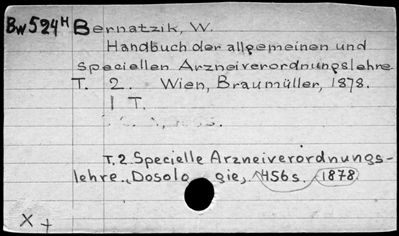 Bw524H Bernatzik, W.
Handbuch der allgemeinen und
speciellen Arzneiverordnungslehre
T. 2. Wien, Braumüller, 1878.
1 T.
T. 2 Specielle Arzneiverordnungs-
lehre. Dosolo gie, 456s. 1878
X +